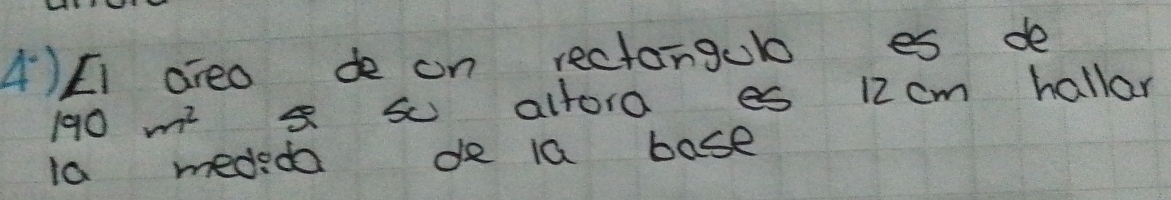 4) El área de un rectángulo es de
190 m² su altura es 12 cm hallar
la medida de la base